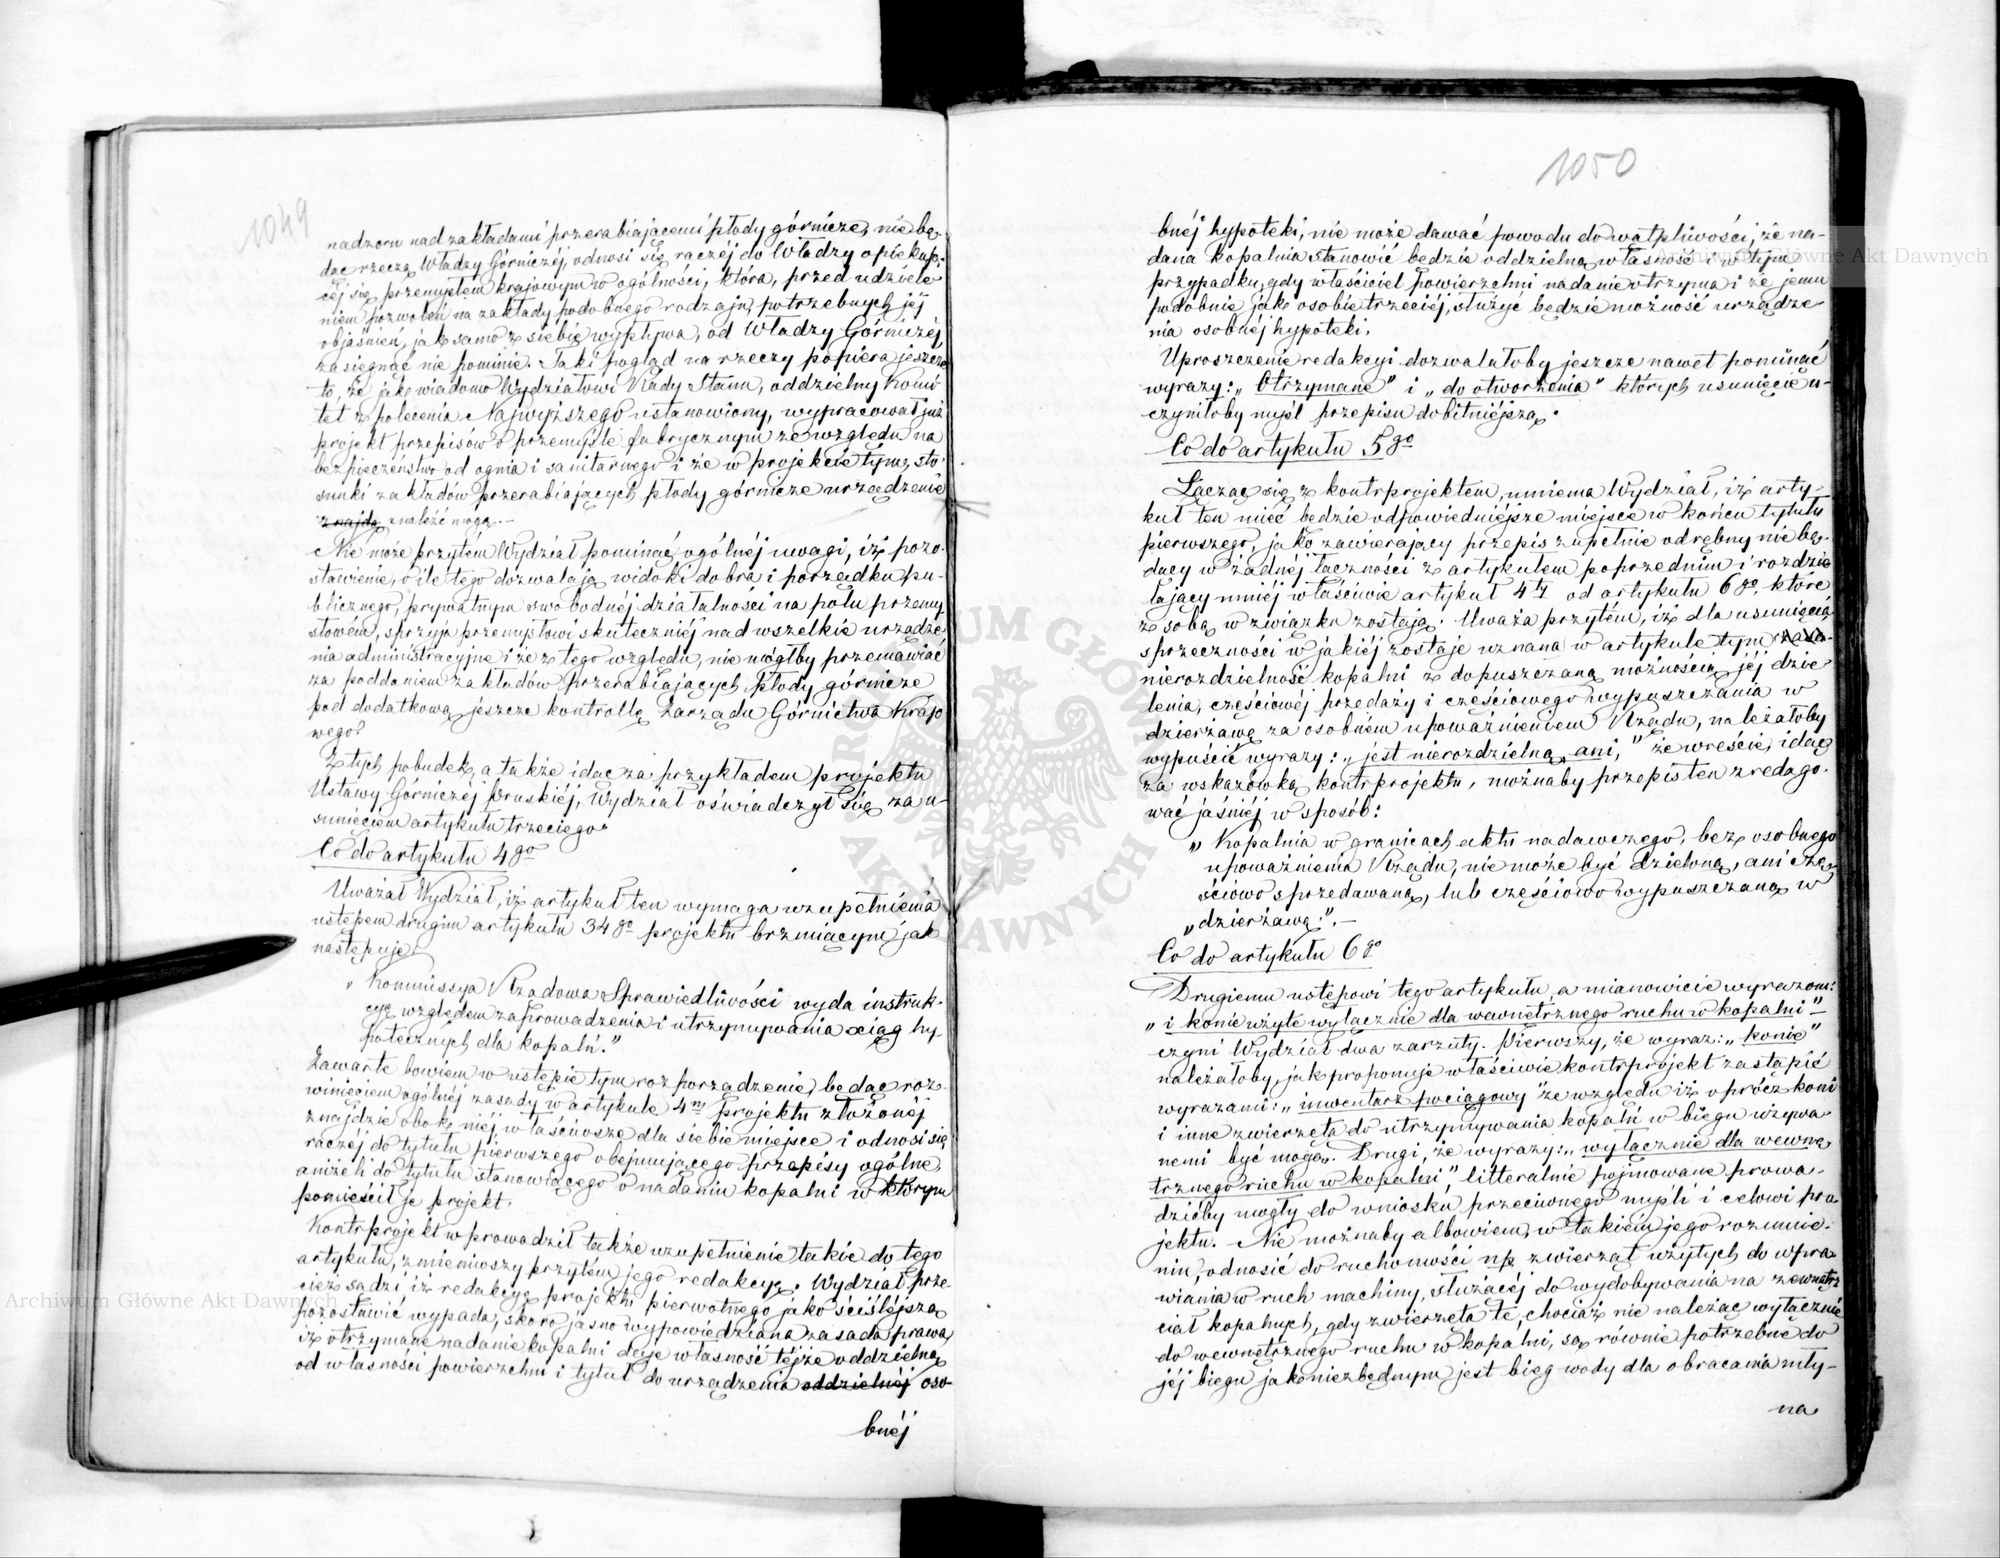 1049
nadzoru nad zakładami przerabiającemi płody górnicze, nie bę-
dąc rzeczą Władzy Górniczéj, odnosi się raczéj do Władzy opiekują-
céj się przemysłem krajowym w ogólności, która, przed udziele
niem pozwoleń na zakłady podobnego rodzaju, potrzebnych jéj
objaśnień, jak samo z siebie wypływa, od Władzy Górniczéj
zasięgnąć nie pominie. Taki pogląd na rzeczy popiera jeszcze
to, że jak wiadomo Wydziałowi Rady Stanu, oddzielny Komi-
tet z polecenia Najwyższego ustanowiony, wypracował już
projekt przepisów o przemyśle fabrycznym ze względu na
bezpieczeństwo od ognia i sanitarnego i że w projekcie tym, sto-
sunki zakładów przerabiających płody górnicze urządzenie
znajdą znaleźć mogą.—
Nie może przytém Wydział pominąć ogólnéj uwagi, iż pozo-
stawienie, o ile tego dozwalają widoki dobra i porządku pu-
blicznego, prywatnym swobodnéj działalności na polu przemy
słowém, sprzyja przemysłowi skuteczniéj nad wszelkie urządze
nia administracyjne i że z tego względu, nie mógłby przemawiać
za poddaniem zakładów przerabiających płody górnicze
pod dodatkową jeszcze kontrollę Zarządu Górnictwa Krajo
wego.
Z tych pobudek, a także idąc za przykładem projektu
Ustawy Górniczéj Pruskiéj, Wydział oświadczył się za u-
sunięciem artykułu trzeciego.
Co do artykułu 4go
Uważał Wydział, iż artykuł ten wymaga uzupełnienia
ustępem drugim artykułu 34go projektu brzmiącym jak
następuje:
„Kommissya Rządowa Sprawiedliwości wyda instruk-
cyę względem zaprowadzenia i utrzymywania xiąg hy
potecznych dla kopalń.”
Zawarte bowiem w ustępie tym rozporządzenie, będąc roz-
winięciem ogólnéj zasady w artykule 4m projektu złożonéj
znajdzie obok niéj właściwsze dla siebie miejsce i odnosi się
raczéj do tytułu pierwszego obejmującego przepisy ogólne,
aniżeli do tytułu stanowiącego o nadaniu kopalni w którym
pomieścił je projekt.
Kontrprojekt wprowadził także uzupełnienie takie do tego
artykułu, zmieniwszy przytém jego redakcyę. Wydział prze-
cież sądzi, iż redakcyę projektu pierwotnego jako ściślejszą
pozostawić wypada, skoro jasno wypowiedziana zasada prawa,
iż otrzymane nadanie kopalni daje własność téjże oddzielną
od własności powierzchni i tytuł do urządzenia oddzielnéj oso-
bnéj
1050
bnéj hypoteki, nie może dawać powodu do wątpliwości, że na-
dana kopalnia stanowić będzie oddzielną własność i w tym
przypadku, gdy właściciel powierzchni nadanie otrzyma i że jemu
podobnie jak osobie trzeciéj, służyć będzie możność urządze-
nia osobnéj hypoteki.
Uproszczenie redakcyi dozwalałoby jeszcze nawet pominąć
wyrazy: „Otrzymane” i „do otworzenia” których usunięcie u-
czyniłoby myśl przepisu dobitniejszą.
Co do artykułu 5go
Łącząc się z kontrprojektem, mniema Wydział, iż arty-
kuł ten mieć będzie odpowiedniejsze miejsce w końcu tytułu
pierwszego, jako zawierający przepis zupełnie odrębny nie bę-
dący w żadnéj łączności z artykułem poprzednim i rozdzie
lający mniéj właściwie artykuł 4ty od artykułu 6go, które
z sobą w związku zostają. Uważa przytém, iż dla usunięcia
sprzeczności w jakiéj zostaje uznana w artykule tym
nierozdzielność kopalni z dopuszczaną możnością jéj dzie
lenia, częściowéj przedaży i częściowego wypuszczania w
dzierżawę za osobném upoważnieniem Rządu, należałoby
wypuścić wyrazy: „jest nierozdzielną, ani,” że wreście, idąc
za wskazówką kontrprojektu, możnaby przepis ten zredago-
wać jaśniéj w sposób:
„Kopalnia w granicach aktu nadawczego, bez osobnego
upoważnienia Rządu, nie może być dzieloną, ani czę-
ściowo sprzedawaną, lub częściowo wypuszczaną w
„dzierżawę.”—
Co do artykułu 6go
Drugiemu ustępowi tego artykułu, a mianowicie wyrazom:
„i konie użyte wyłącznie dla wewnętrznego ruchu w kopalni”
czyni Wydział dwa zarzuty. Pierwszy, że wyraz: „konie”
należałoby, jak proponuje właściwie kontrprojekt zastąpić
wyrazami: „inwentarz pociągowy” ze względu iż oprócz koni
i inne zwierzęta do utrzymywania kopalń w biegu używa
nemi być mogą. Drugi, że wyrazy: „wyłącznie dla wewnę
trznego ruchu w kopalni”, litteralnie pojmowane, prowa-
dzićby mogły do wniosku przeciwnego myśli i celowi pro
jektu. Nie możnaby albowiem, w takiém jego rozumie-
niu, odnosić do ruchomości np. zwierząt użytych do wpra
wiania w ruch machiny, służącéj do wydobywania na zewnątrz
ciał kopalnych, gdy zwierzęta te, chociaż nie należąc wyłącznie
do wewnętrznego ruchu w kopalni, są równie potrzebne do
jéj biegu jak niezbędnym jest bieg wody dla obracania mły-
na
Archiwum Główne Akt Dawnych